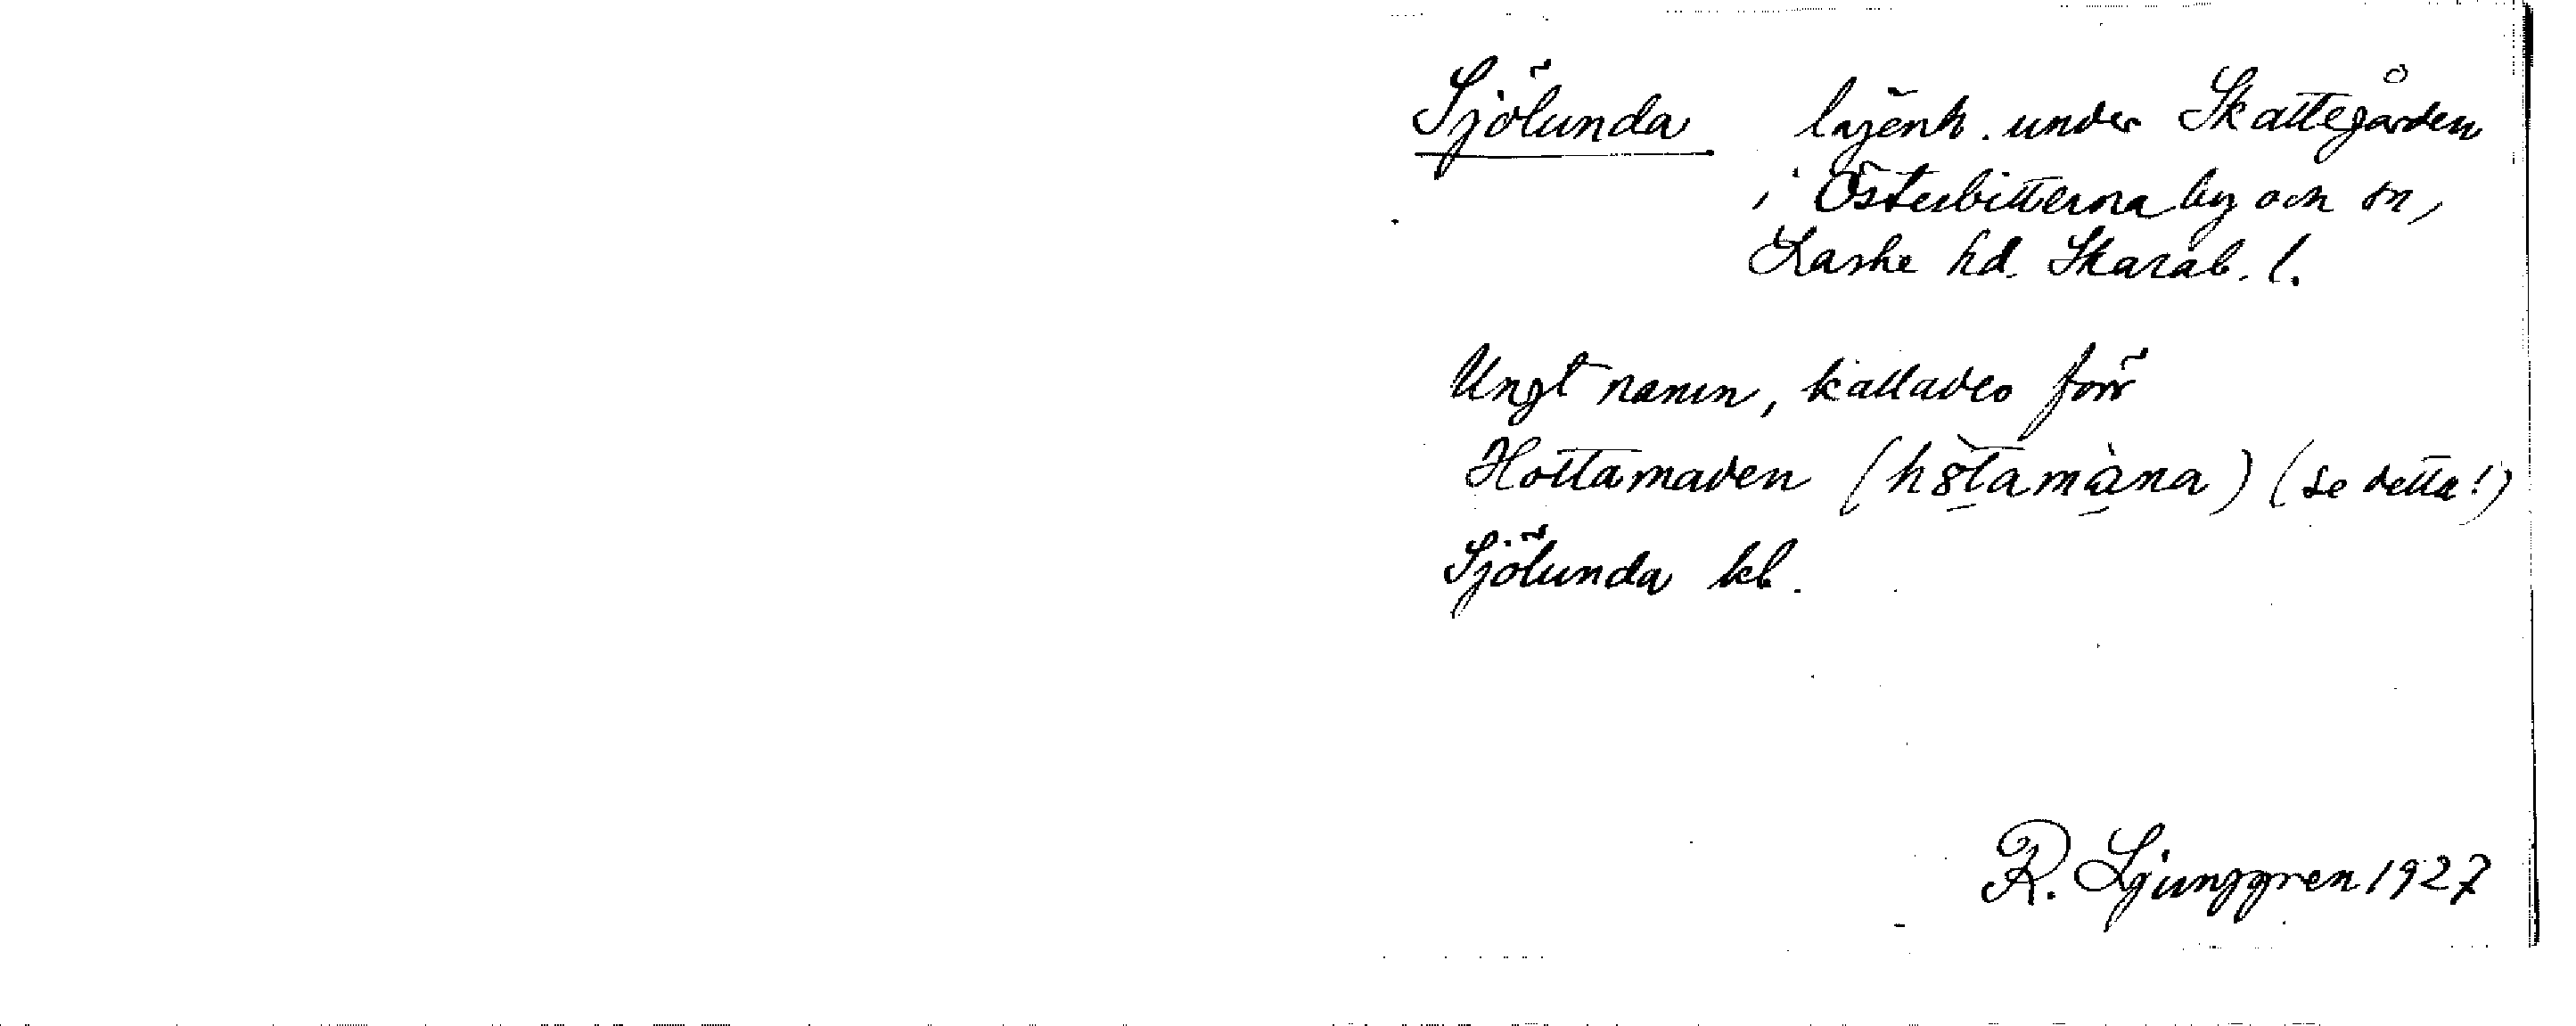 Sjölunda lägenh. under Skattegården
i Österbitterna by och sn,
Laske hd. Skarab. l.
Ungt namn, kallades förr
Hottamaden (hòtamàna) (se detta!)
Sjölunda kb.
R. Ljunggren 1927